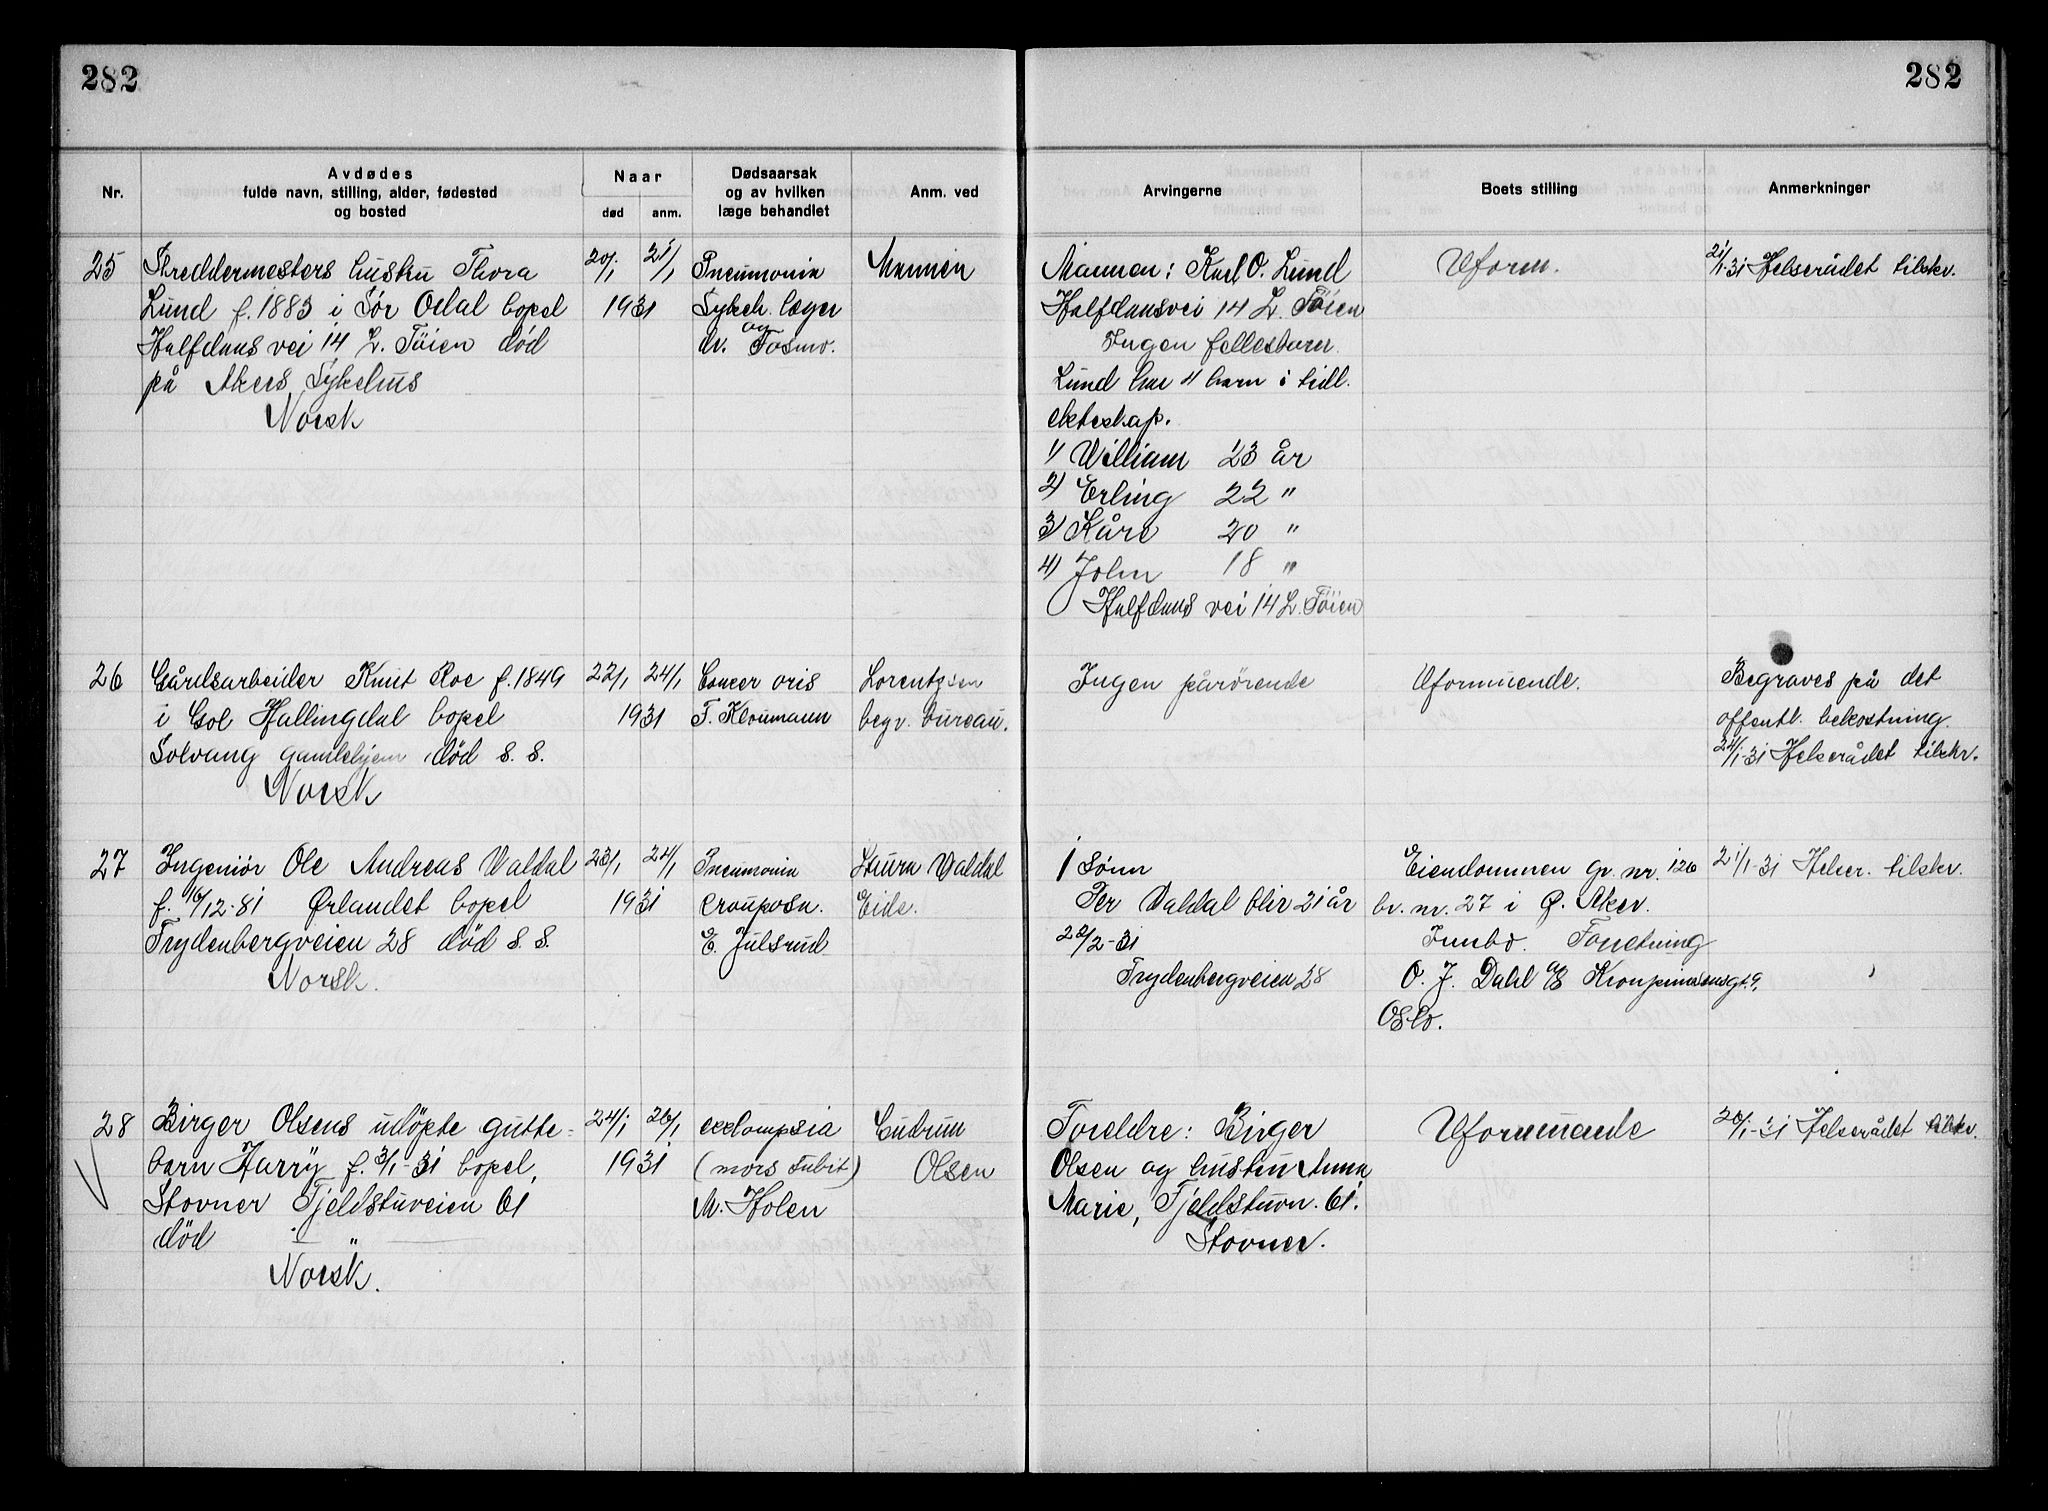 282
282
Nr.
Avdødes
fulde navn, stilling, alder, fødested
og bosted
Naar
død
anm.
Dødsaarsak
og av hvilken
læge behandlet
Anm. ved
Arvingerne
Boets stilling
Anmerkninger
25
Skreddermesters hustru Thora
Lund f. 1883 i Sør Odal bopel
Halfdans vei 14 L. Töien død
på Akers Sykehus
Norsk
20/1 21/1
1931
Pneumonia
Sykeh. læger
og
dr. Fosmo.
Mannen
Mannen: Karl O. Lund
Halfdansvei 14 L. Töien
Ingen fellesbarn.
Lund har 4 barn i tidl.
ekteskap.
1) William 23 år
2) Erling 22 "
3) Kåre 20 "
4) John 18 "
Halfdans vei 14 L. Töien
Uform.
21/1-31 Helserådet tilskr.
26
Gårdsarbeider Knut Roe f. 1849
i Gol Hallingdal bopel
Solvang gamlehjem død s. s.
Norsk
22/1 24/1
1931
Cancer oris
F. Kloumann
Lorentzsen
begr. bureau.
Ingen pårørende
Uformuende.
Begraves på det
offentl. bekostning.
24/1-31 Helserådet tilskr.
27
Ingeniør Ole Andreas Valdal
f. 16/12-81 Ørlandet bopel
Frydenbergveien 28 død s. s.
Norsk.
23/1 24/1
1931
Pneumonia
crouposa.
E. Julsrud
Laura Valdal
Eide.
1 sønn
Per Valdal blir 21 år
22/2-31
Frydenbergveien 28
Eiendommen gr. nr. 126
br. nr. 27 i Ø. Aker.
Innbo. Forretning
O. J. Dahl A/S Kronprinsensgt. 9,
Oslo.
2 1/1-31 Helser. tilskr.
28
Birger Olsens udöpte gutte-
barn Harry f. 3/1-31 bopel,
Stovner Fjeldstuveien 61
død — " —
Norsk.
24/1 26/1
1931
ecclampsia
(mors subit)
M. Holen
Gudrun
Olsen
Foreldre: Birger
Olsen og hustru Anna
Marie, Fjeldstuvn. 61.
Stovner.
Uformuende
26/1-31 Helserådet tilskr.